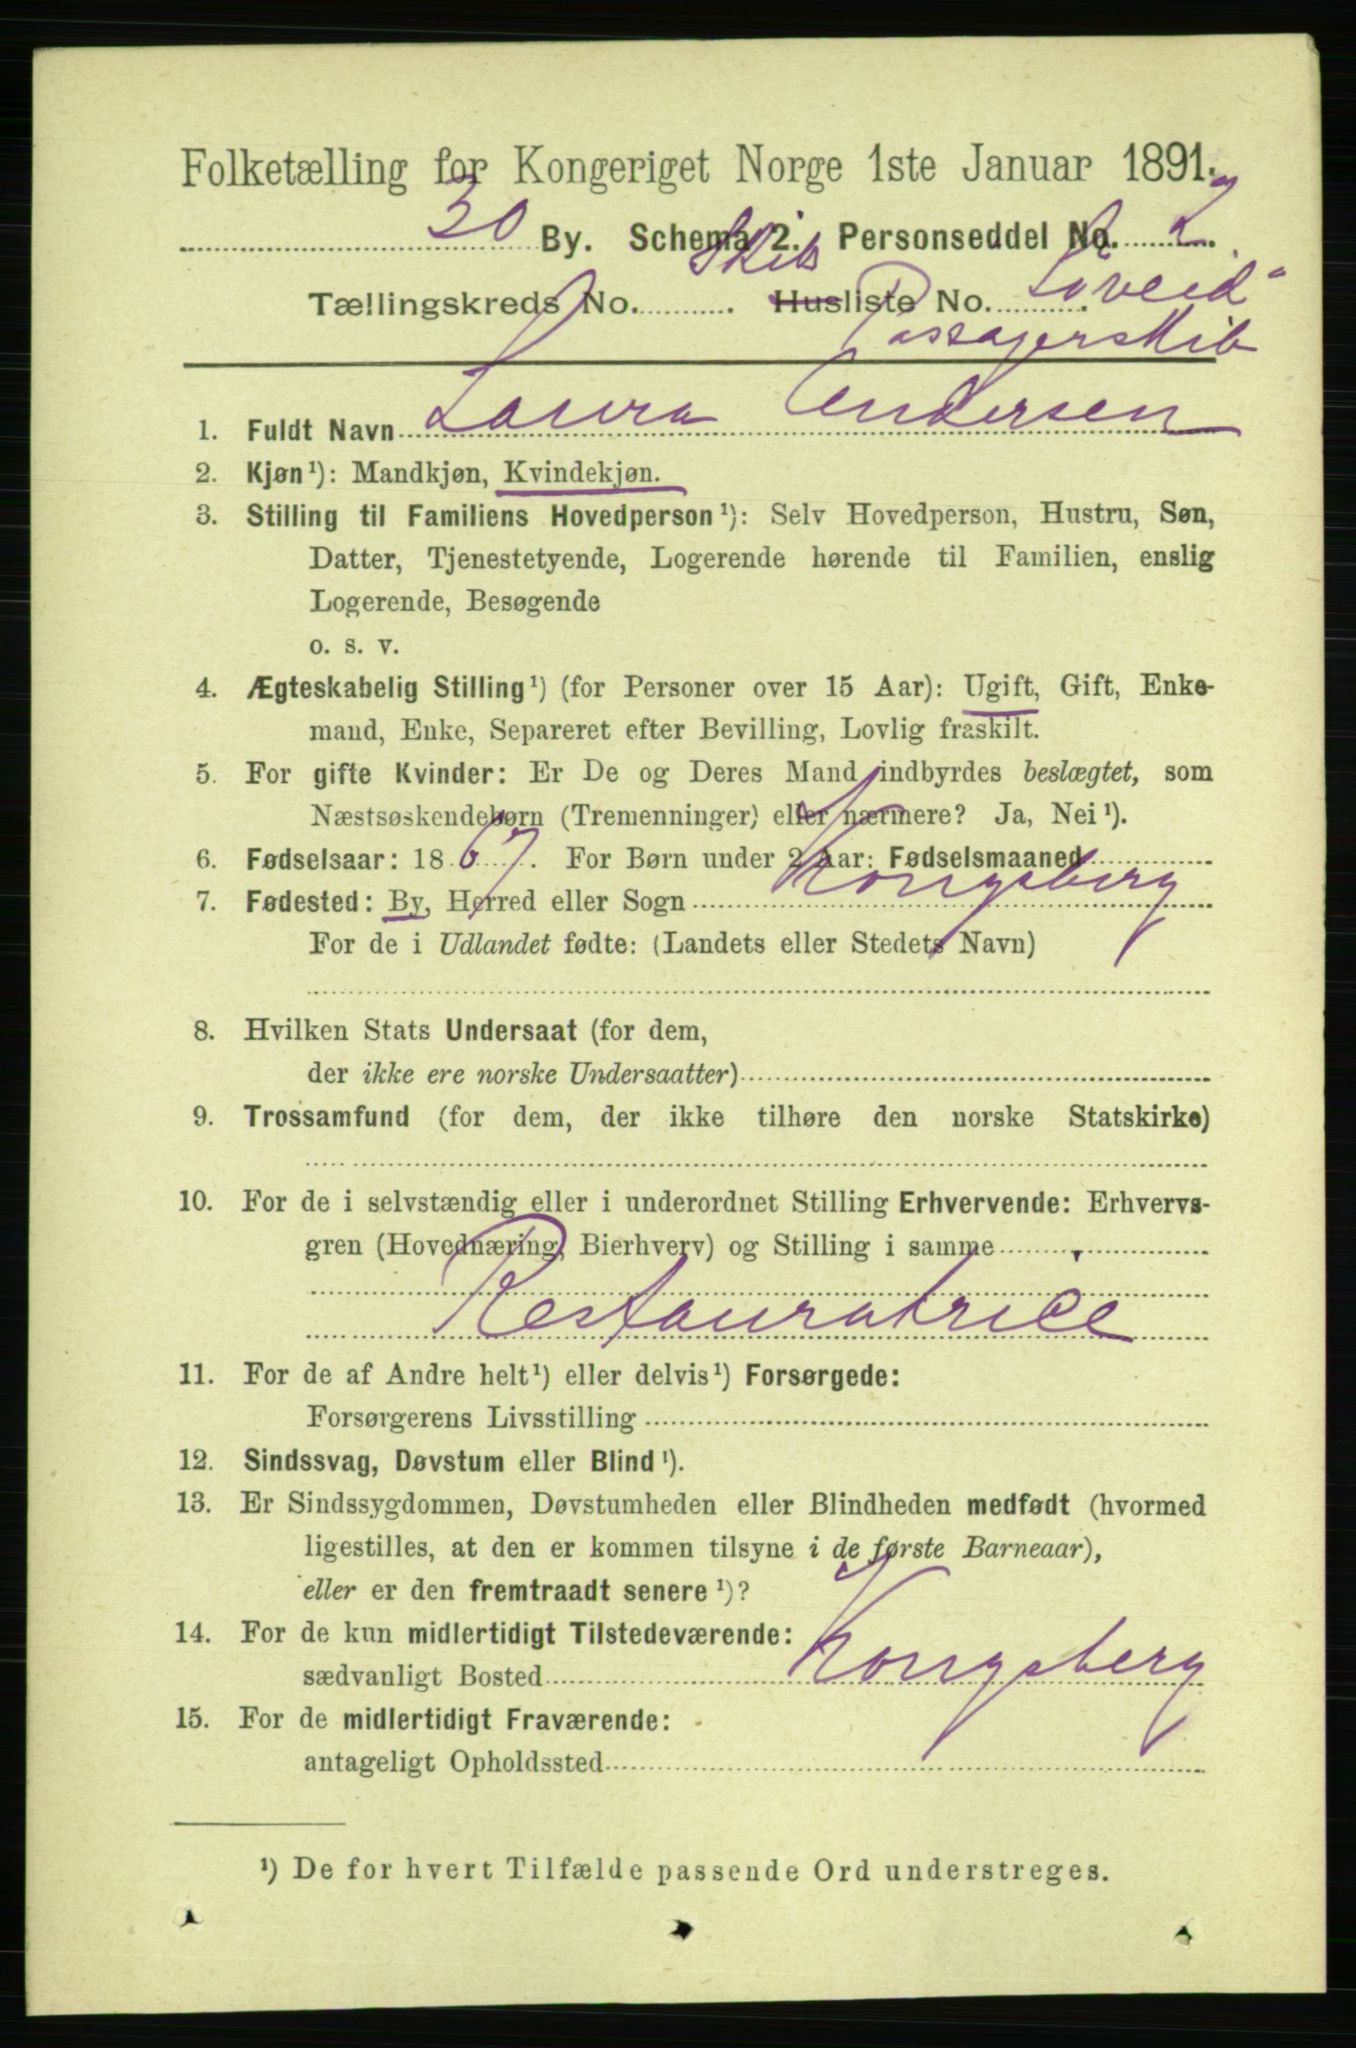 Folketælling for Kongeriget Norge 1ste Januar 1891.
30 By. Schema 2. Personseddel No. 2.
Tællingskreds No. . Skibs Husliste No. Løveid"
Passagerskib
1. Fuldt Navn Laura Andersen
2. Kjøn¹): Mandkjøn, Kvindekjøn.
3. Stilling til Familiens Hovedperson¹): Selv Hovedperson, Hustru, Søn,
Datter, Tjenestetyende, Logerende hørende til Familien, enslig
Logerende, Besøgende
o. s. v.
4. Ægteskabelig Stilling¹) (for Personer over 15 Aar): Ugift, Gift, Enke-
mand, Enke, Separeret efter Bevilling, Lovlig fraskilt.
5. For gifte Kvinder: Er De og Deres Mand indbyrdes beslægtet, som
Næstsøskendebørn (Tremenninger) eller nærmere? Ja, Nei¹).
6. Fødselsaar: 1867. For Børn under 2 Aar: Fødselsmaaned
7. Fødested: By, Herred eller Sogn Kongsberg
For de i Udlandet fødte: (Landets eller Stedets Navn)
8. Hvilken Stats Undersaat (for dem,
der ikke ere norske Undersaatter)
9. Trossamfund (for dem, der ikke tilhøre den norske Statskirke)
10. For de i selvstændig eller i underordnet Stilling Erhvervende: Erhvervs-
gren (Hovednæring, Bierhverv) og Stilling i samme
Restauratrice
11. For de af Andre helt¹) eller delvis¹) Forsørgede:
Forsørgerens Livsstilling
12. Sindssvag, Døvstum eller Blind¹).
13. Er Sindssygdommen, Døvstumheden eller Blindheden medfødt (hvormed
ligestilles, at den er kommen tilsyne i de første Barneaar),
eller er den fremtraadt senere¹)?
14. For de kun midlertidigt Tilstedeværende:
sædvanligt Bosted Kongsberg
15. For de midlertidigt Fraværende:
antageligt Opholdssted
¹) De for hvert Tilfælde passende Ord understreges.